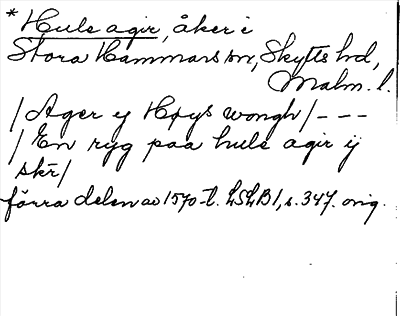 * Hule agir, åker i
Stora Hammars sn, Skytts hd,
Malm. l.
/ Ager ÿ Høys wongh / - - -
/ En ryg paa hule agir ÿ
skr /
förra delen av 1570-t. LSLB 1, s. 347. orig.